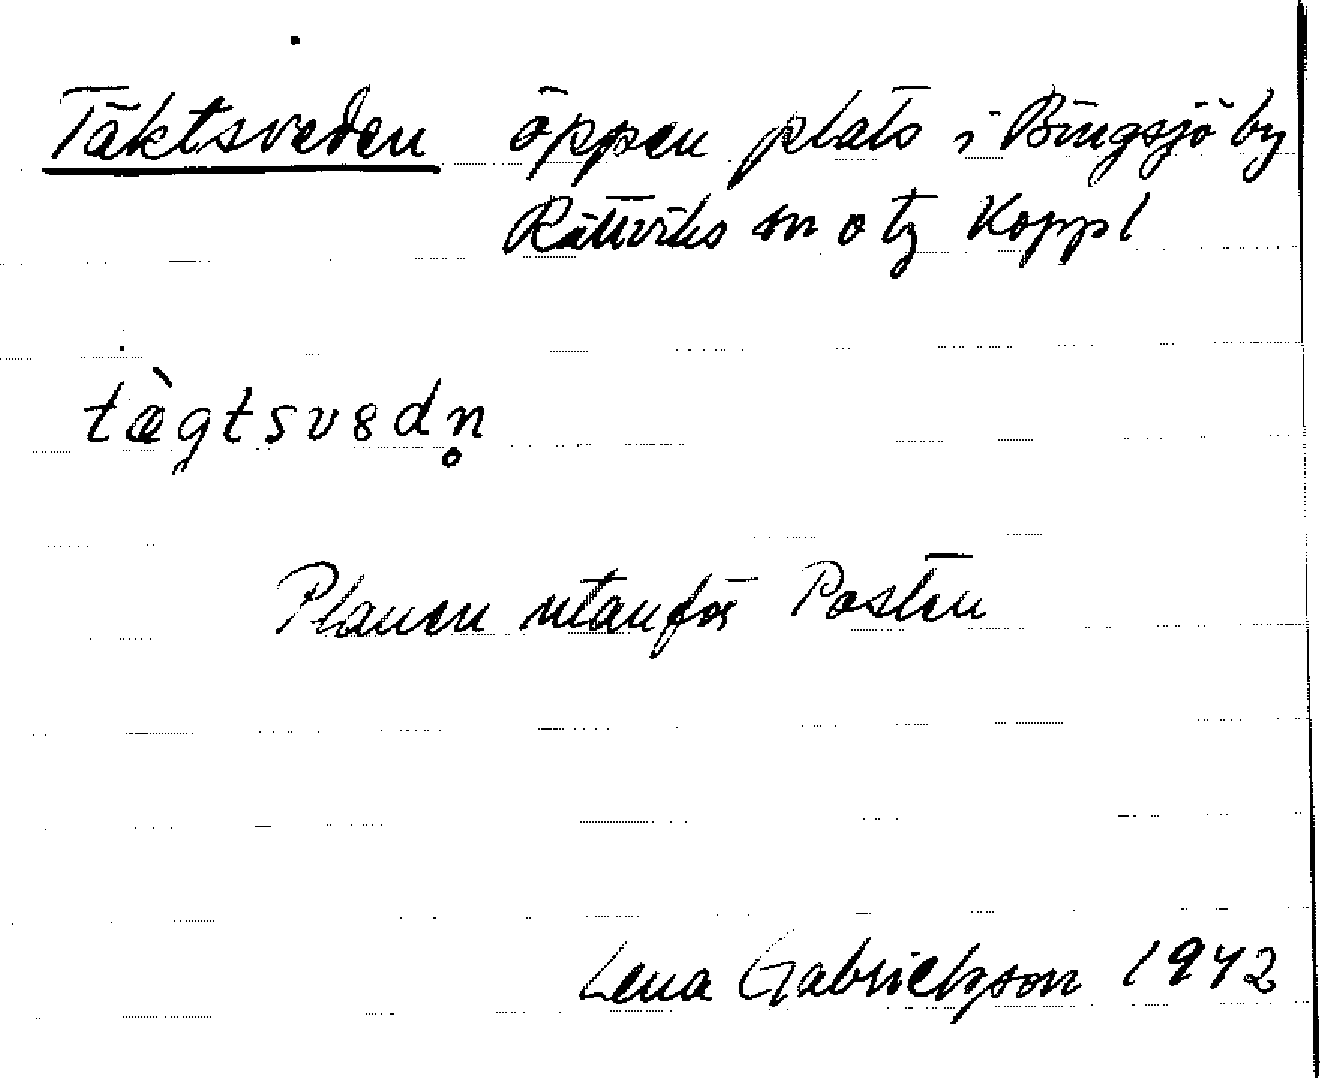 Täktsveden öppen plats i Bingsjö by
Rättviks sn o tg Koppl
tæ̀gtsv8dn̥
Planen utanför Posten
Lena Gabrielsson 1942